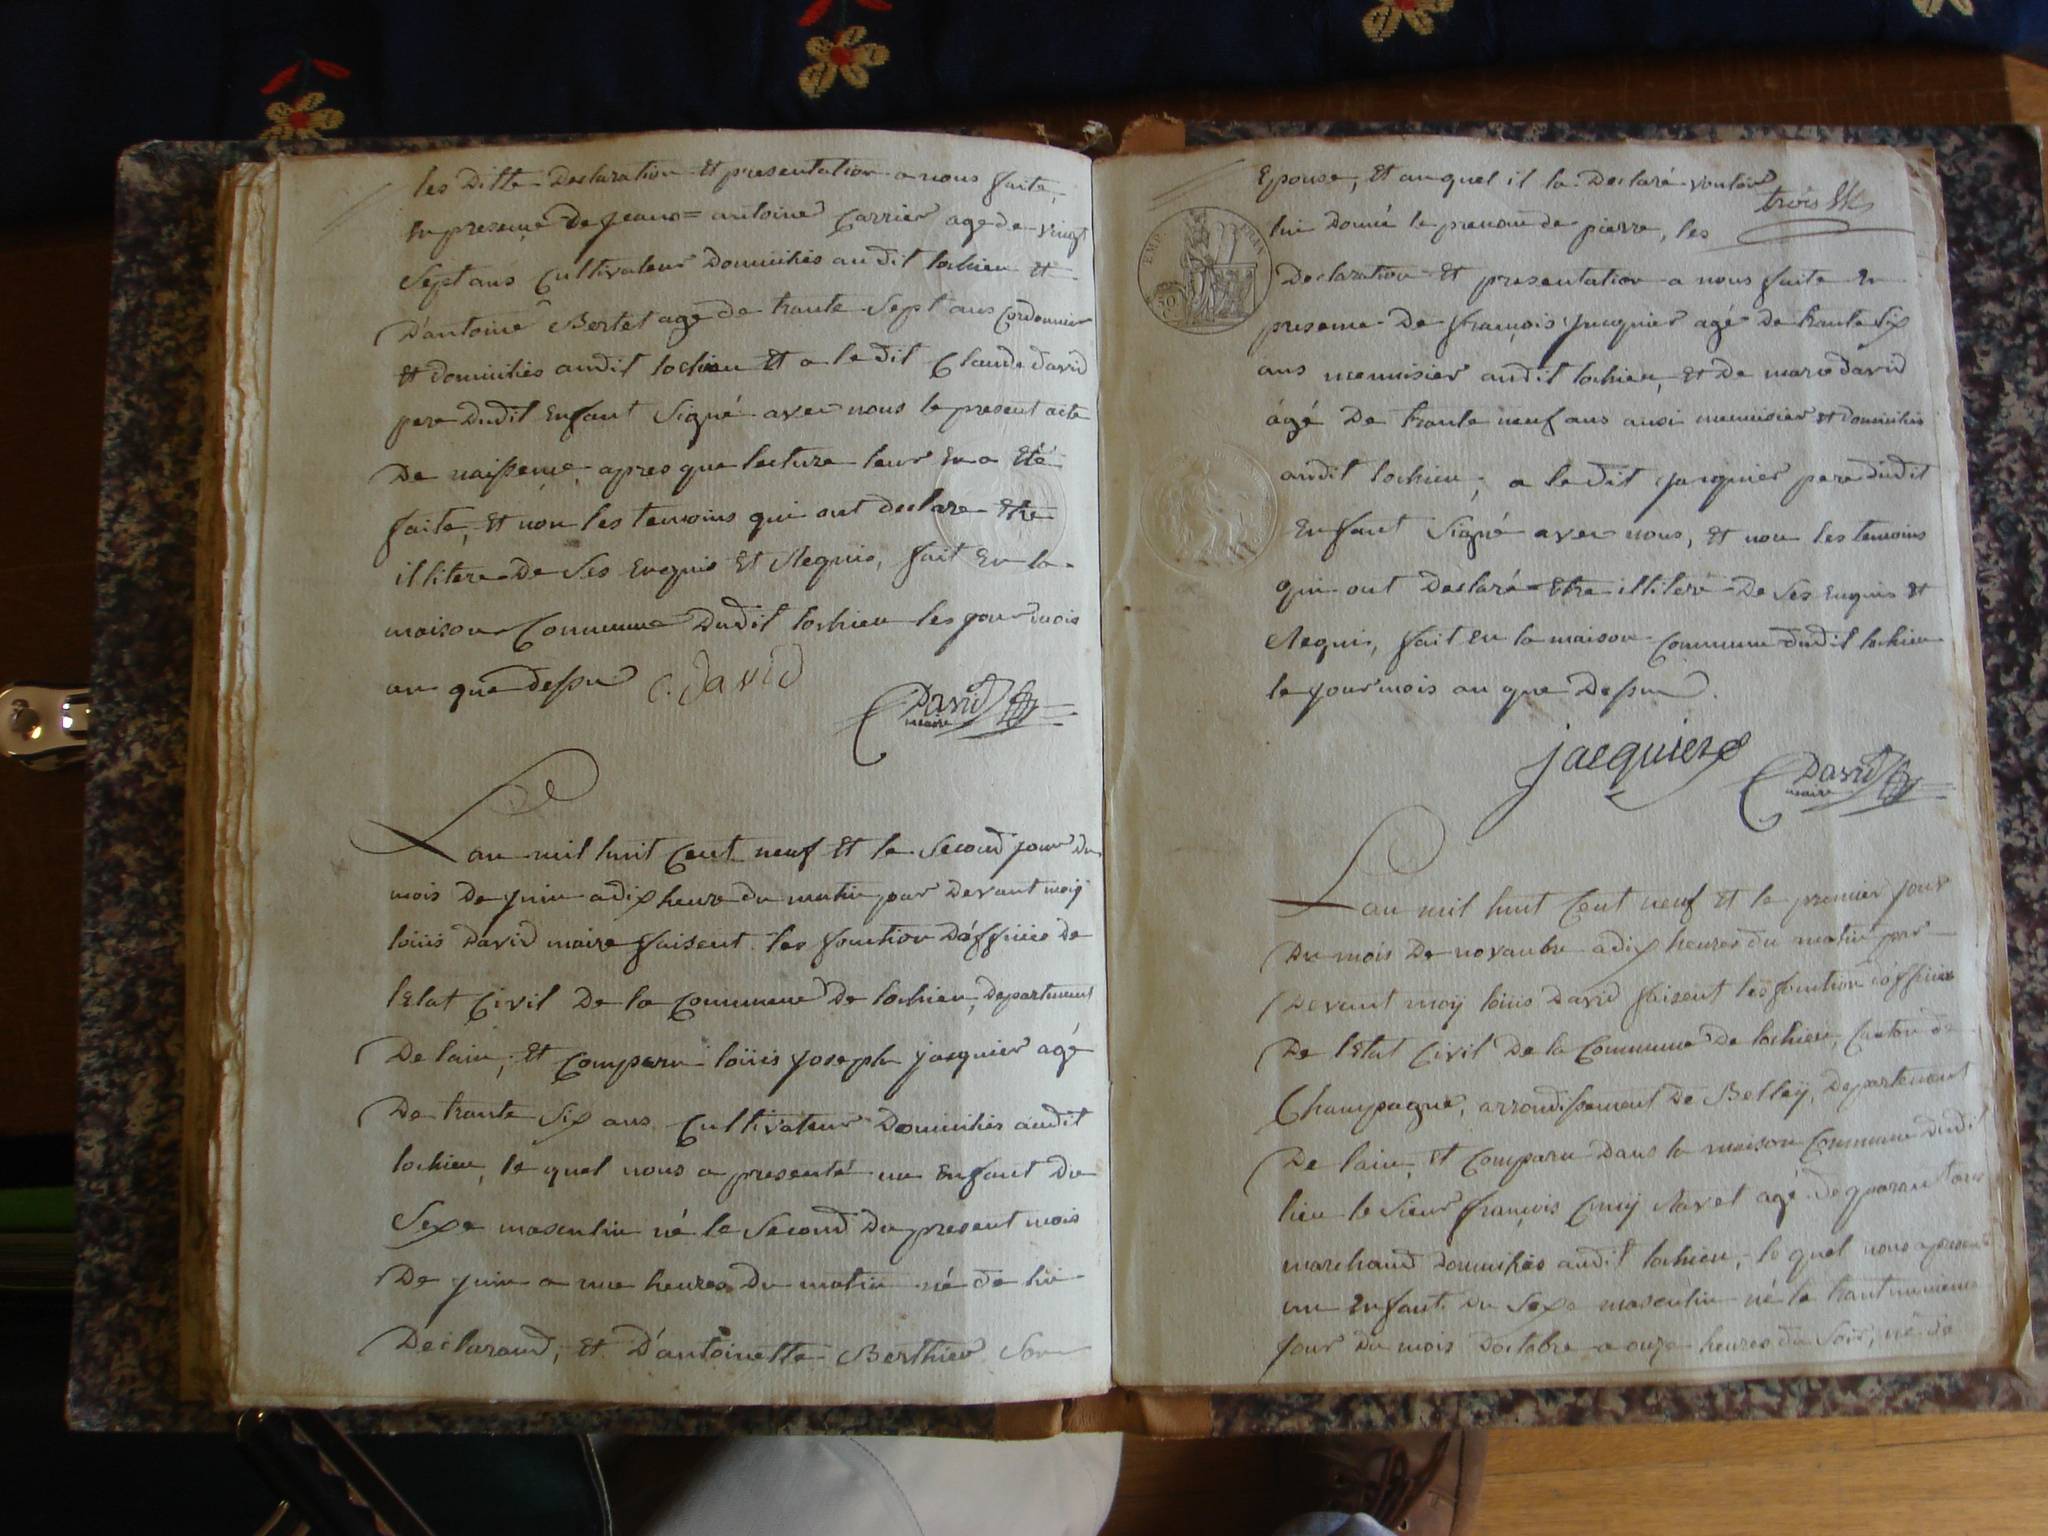 les Ditte Declaration Et presentation a nous faite,
En presence De jeane= antoine Carrier agé de vingt
Sept ans Cultivateur Domicilies audit lochieu Et
D'antoine Bertet agé de trante Sept ans Cordonnier
Et domicilies audit lochieu Et a le dit Claude david
pere Dudit Enfant Signé avec nous le present acte
De naissence, apres que lecture leur En a Eté
faite, Et non les temoins qui ont declare Etre
illitere De Ses Enquis Et Requis, fait En la
maison Commune Dudit lochieu les jour mois
an que dessu C. David
David
maire
Lan mil huit Cent neuf Et le Second jour du
mois De juin a dix heure du matin par Devant moÿ
loüis David maire faisent les fonction D'officié de
l'Etat Civil De la Commune De lochieu, Departement
De lain, Et Comparu loüis joseph jacquier agé
De trante Six ans Cultivateur Domicilies audit
lochieu, le quel nous a presenté un Enfant Du
Sexe masculin né le Second Du present mois
De juin a une heures Du matin né de lui
Declarand, Et D'antoinette Berthier Son
Epouse, Et auquel il la Declaré vouloir
trois
lui Donné le prenom de pierre, les
EMP. FRAN.
50
Declaration Et presentation a nous faite En
presence De françois jacquier agé De trante Six
ans menuisier audit lochieu, Et De marie david
âgé De trante neuf ans ausi menuisier et domicilies
audit lochieu, a le dit jacquier pere dudit
Enfant Signé avec nous, Et non les temoins
qui ont Declaré Etre illiteré De Ses Enquis Et
Requis, fait En la maison Commune dudit lochieu
le jour mois an que Dessu.
jacquier
David
maire
Lan mil huit Cent neuf Et le premier jour
Du mois De novanbre a dix heures du matin par
Devant moÿ loüis David faisent les fonction d'officié
De l'Etat Civil De la Commune De lochieu, Canton de
Champagne, arrondissement De Belleÿ, Departement
De lain, Et Comparu Dans la maison Commune dudit
lieu le Sieur françois Cuaÿ Ravet agé de quarant ans
marchand Domicilies audit lochieu, le quel nous a presenté
un Enfant Du Sexe masculin né le trant unieme
jour Du mois Doctobre a onze heures du Soir, né de